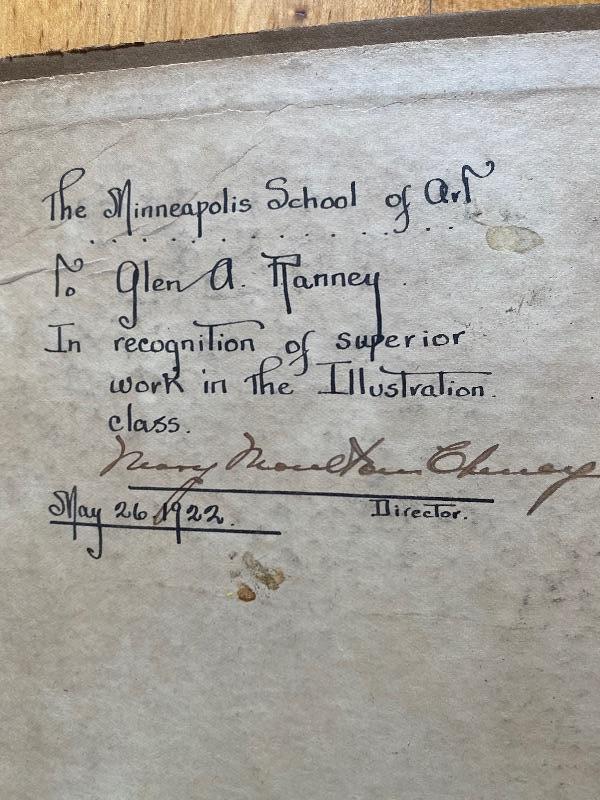 The Minneapolis School of Art
To Glen A. Ranney
In recognition of superior
work in the Illustration
class.
Mary Moulton Cheney
May 26 1922.
Director.